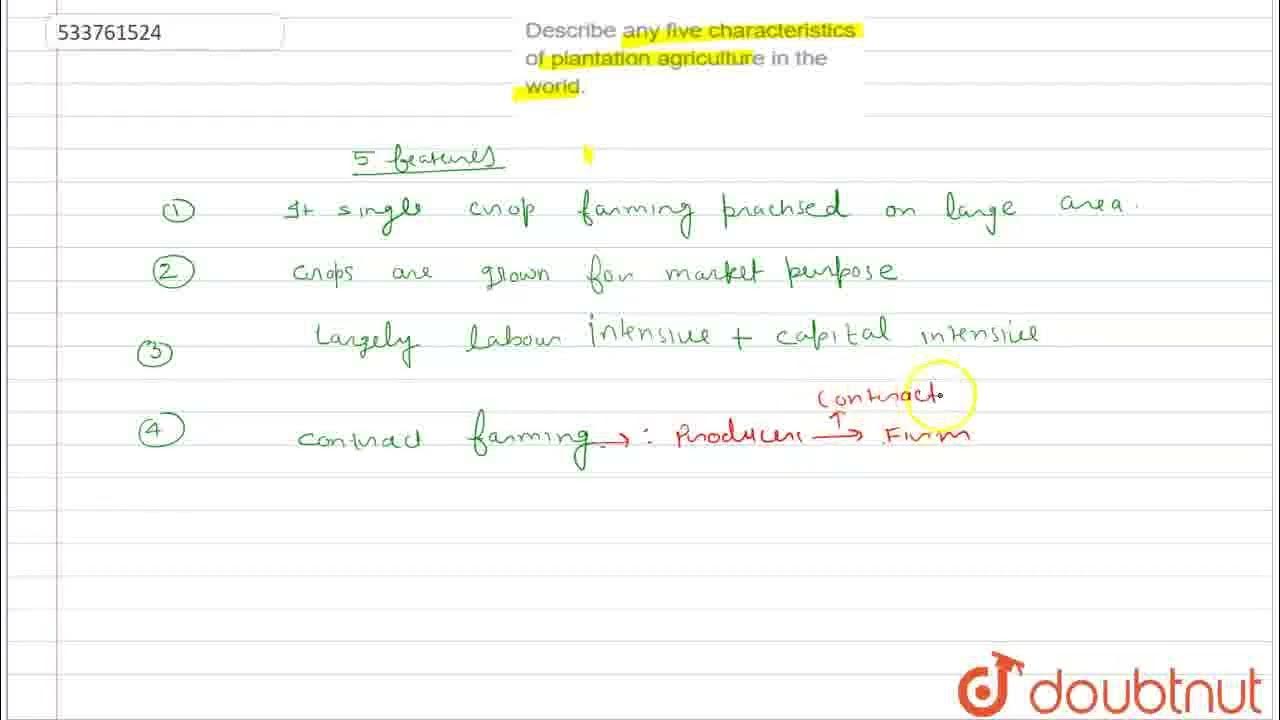 533761524
Describe any five characteristics
of plantation agriculture in the
world.
5 features
① It single crop farming practised on large area.
② crops are grown for market purpose
③ Largely labour intensive + capital intensive
contract
④ contract farming → : Producers → Firm
doubtnut